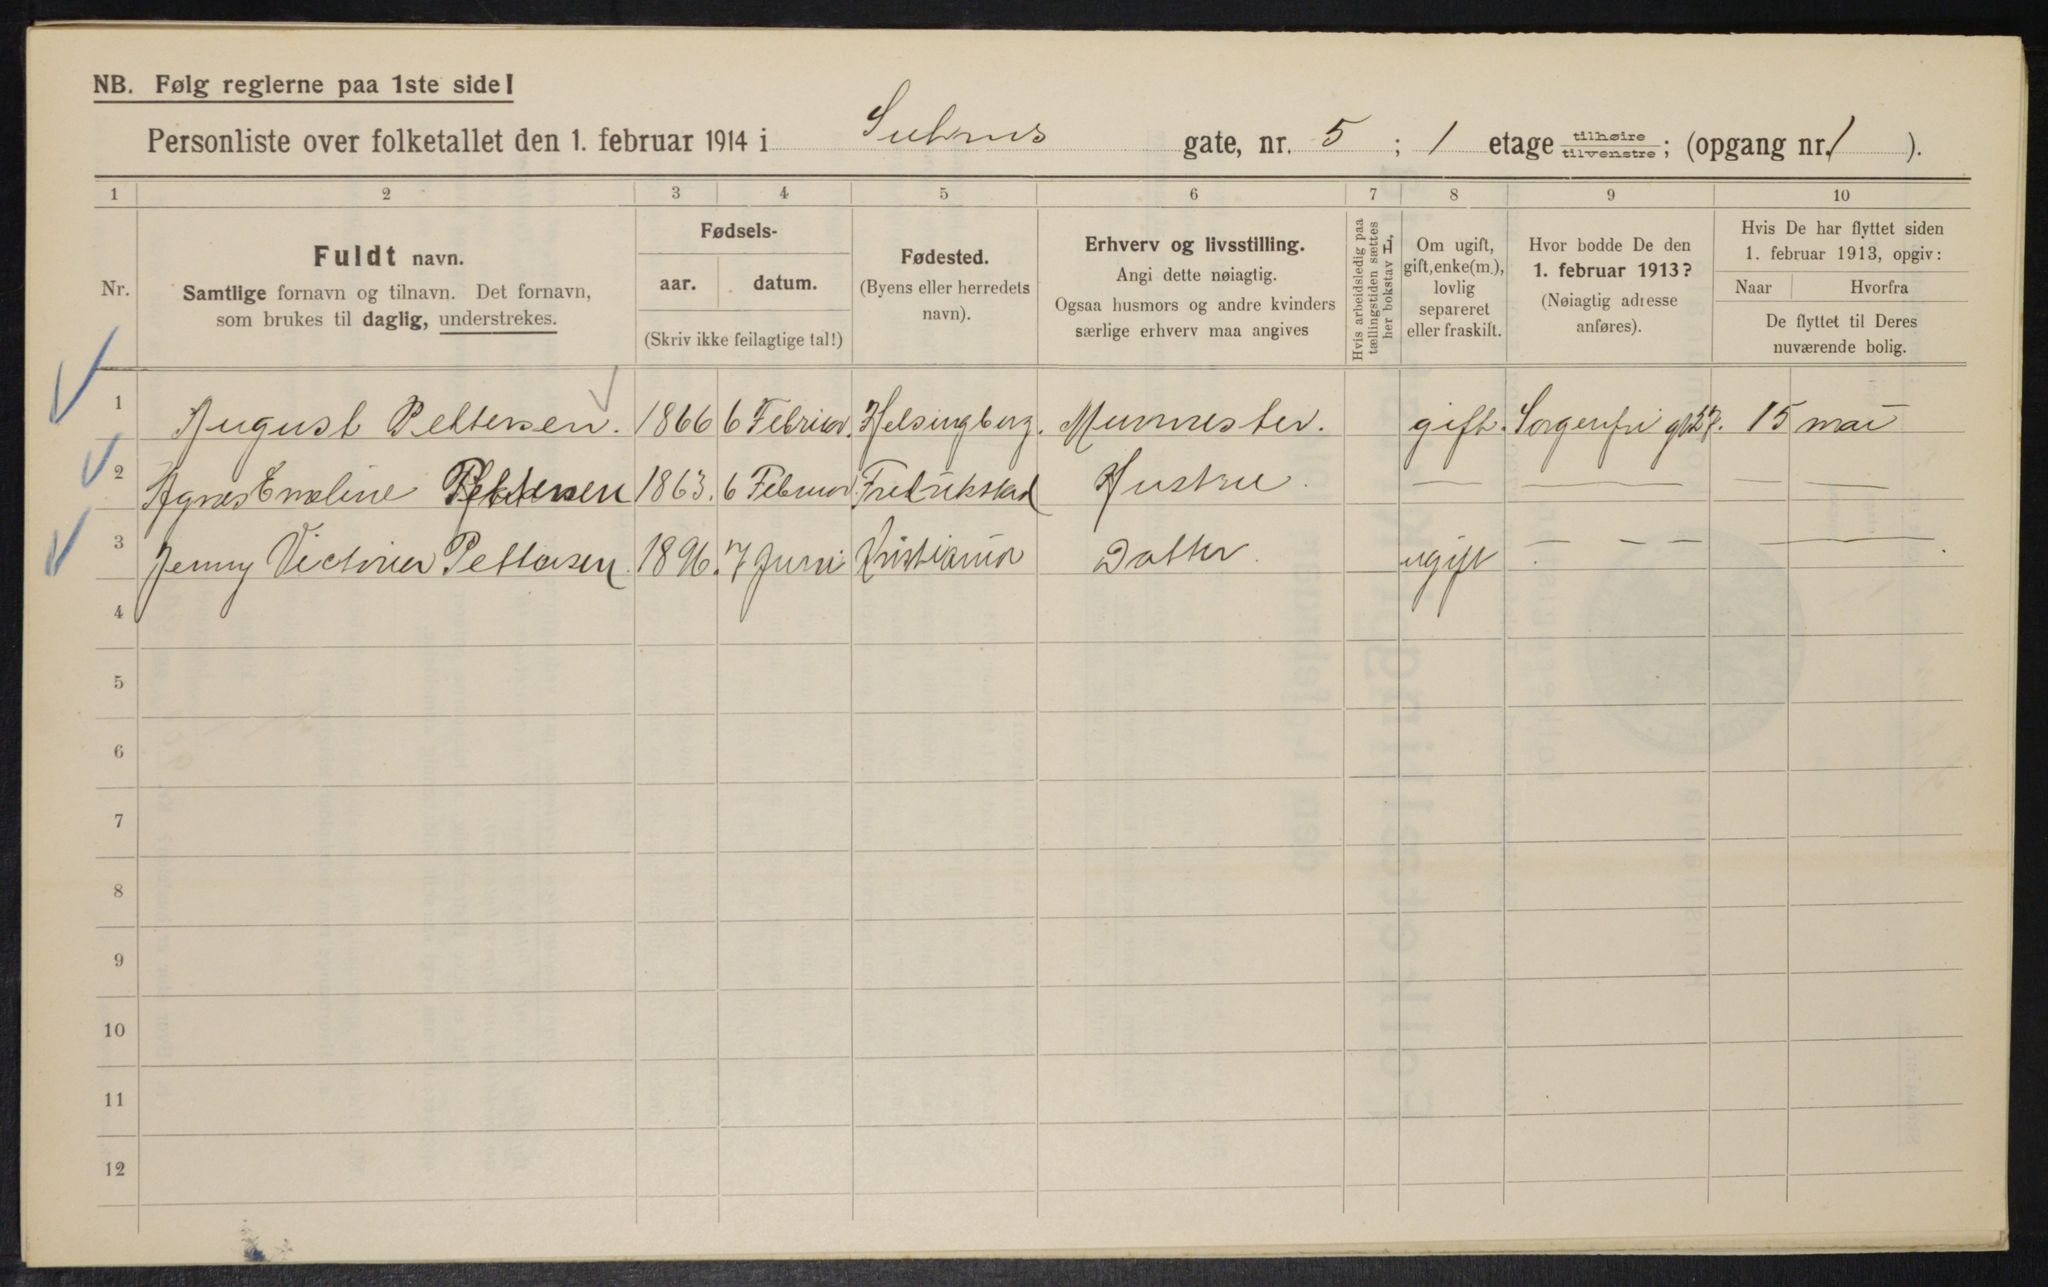 NB. Følg reglerne paa 1ste side!
Personliste over folketallet den 1. februar 1914 i Suhms gate, nr. 5 ; 1 etage tilhøire tilvenstre; (opgang nr. 1 ).
1 2 3 4 5 6 7 8 9 10
Nr.
Fuldt navn.
Samtlige fornavn og tilnavn. Det fornavn,
som brukes til daglig, understrekes.
Fødsels-
aar. datum.
(Skriv ikke feilagtige tal!)
Fødested.
(Byens eller herredets
navn).
Erhverv og livsstilling.
Angi dette nøiagtig.
Ogsaa husmors og andre kvinders
særlige erhverv maa angives
Hvis arbeidsledig paa
tællingstiden sættes
her bokstav L,
Om ugift,
gift, enke(m.),
lovlig
separeret
eller fraskilt.
Hvor bodde De den
1. februar 1913?
(Nøiagtig adresse
anføres).
Hvis De har flyttet siden
1. februar 1913, opgiv:
Naar Hvorfra
De flyttet til Deres
nuværende bolig.
1 August Pettersen. 1866 6 Februar. Helsingborg. Murmester. gift. Sorgenfri gt 27. 15 mai
2 Agnes Emeline Pettersen 1863. 6 Februar Fredrikstad Hustru. — — — — —
3 Jenny Victoria Pettersen. 1896. 7 Juni Kristiania Datter. ugift — — — —
4
5
6
7
8
9
10
11
12